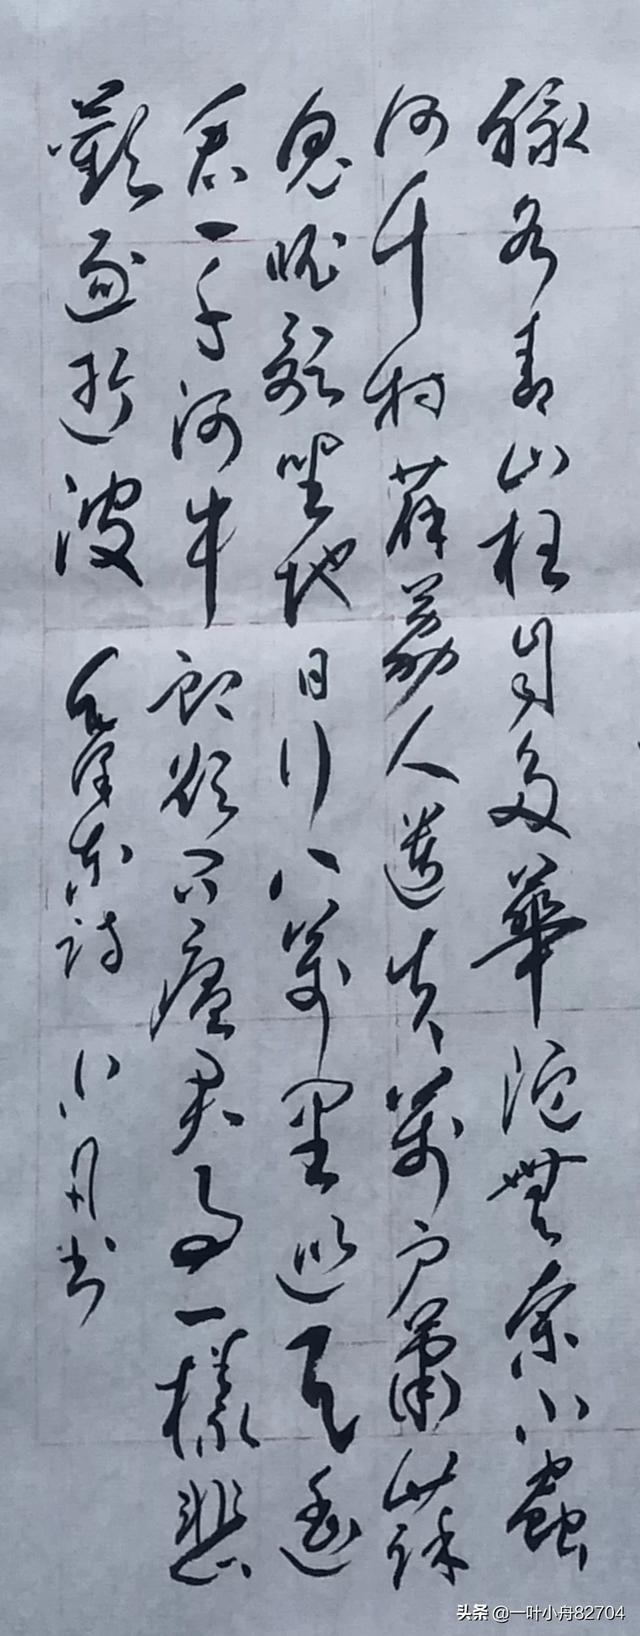 綠水青山枉自多華佗無奈小蟲
何千村薜荔人遺矢萬戶蕭疏
鬼唱歌坐地日行八萬里巡天遥
看一千河牛郎欲問瘟神事一樣悲
歡逐逝波 毛澤東詩 小舟书
头条 @一叶小舟82704